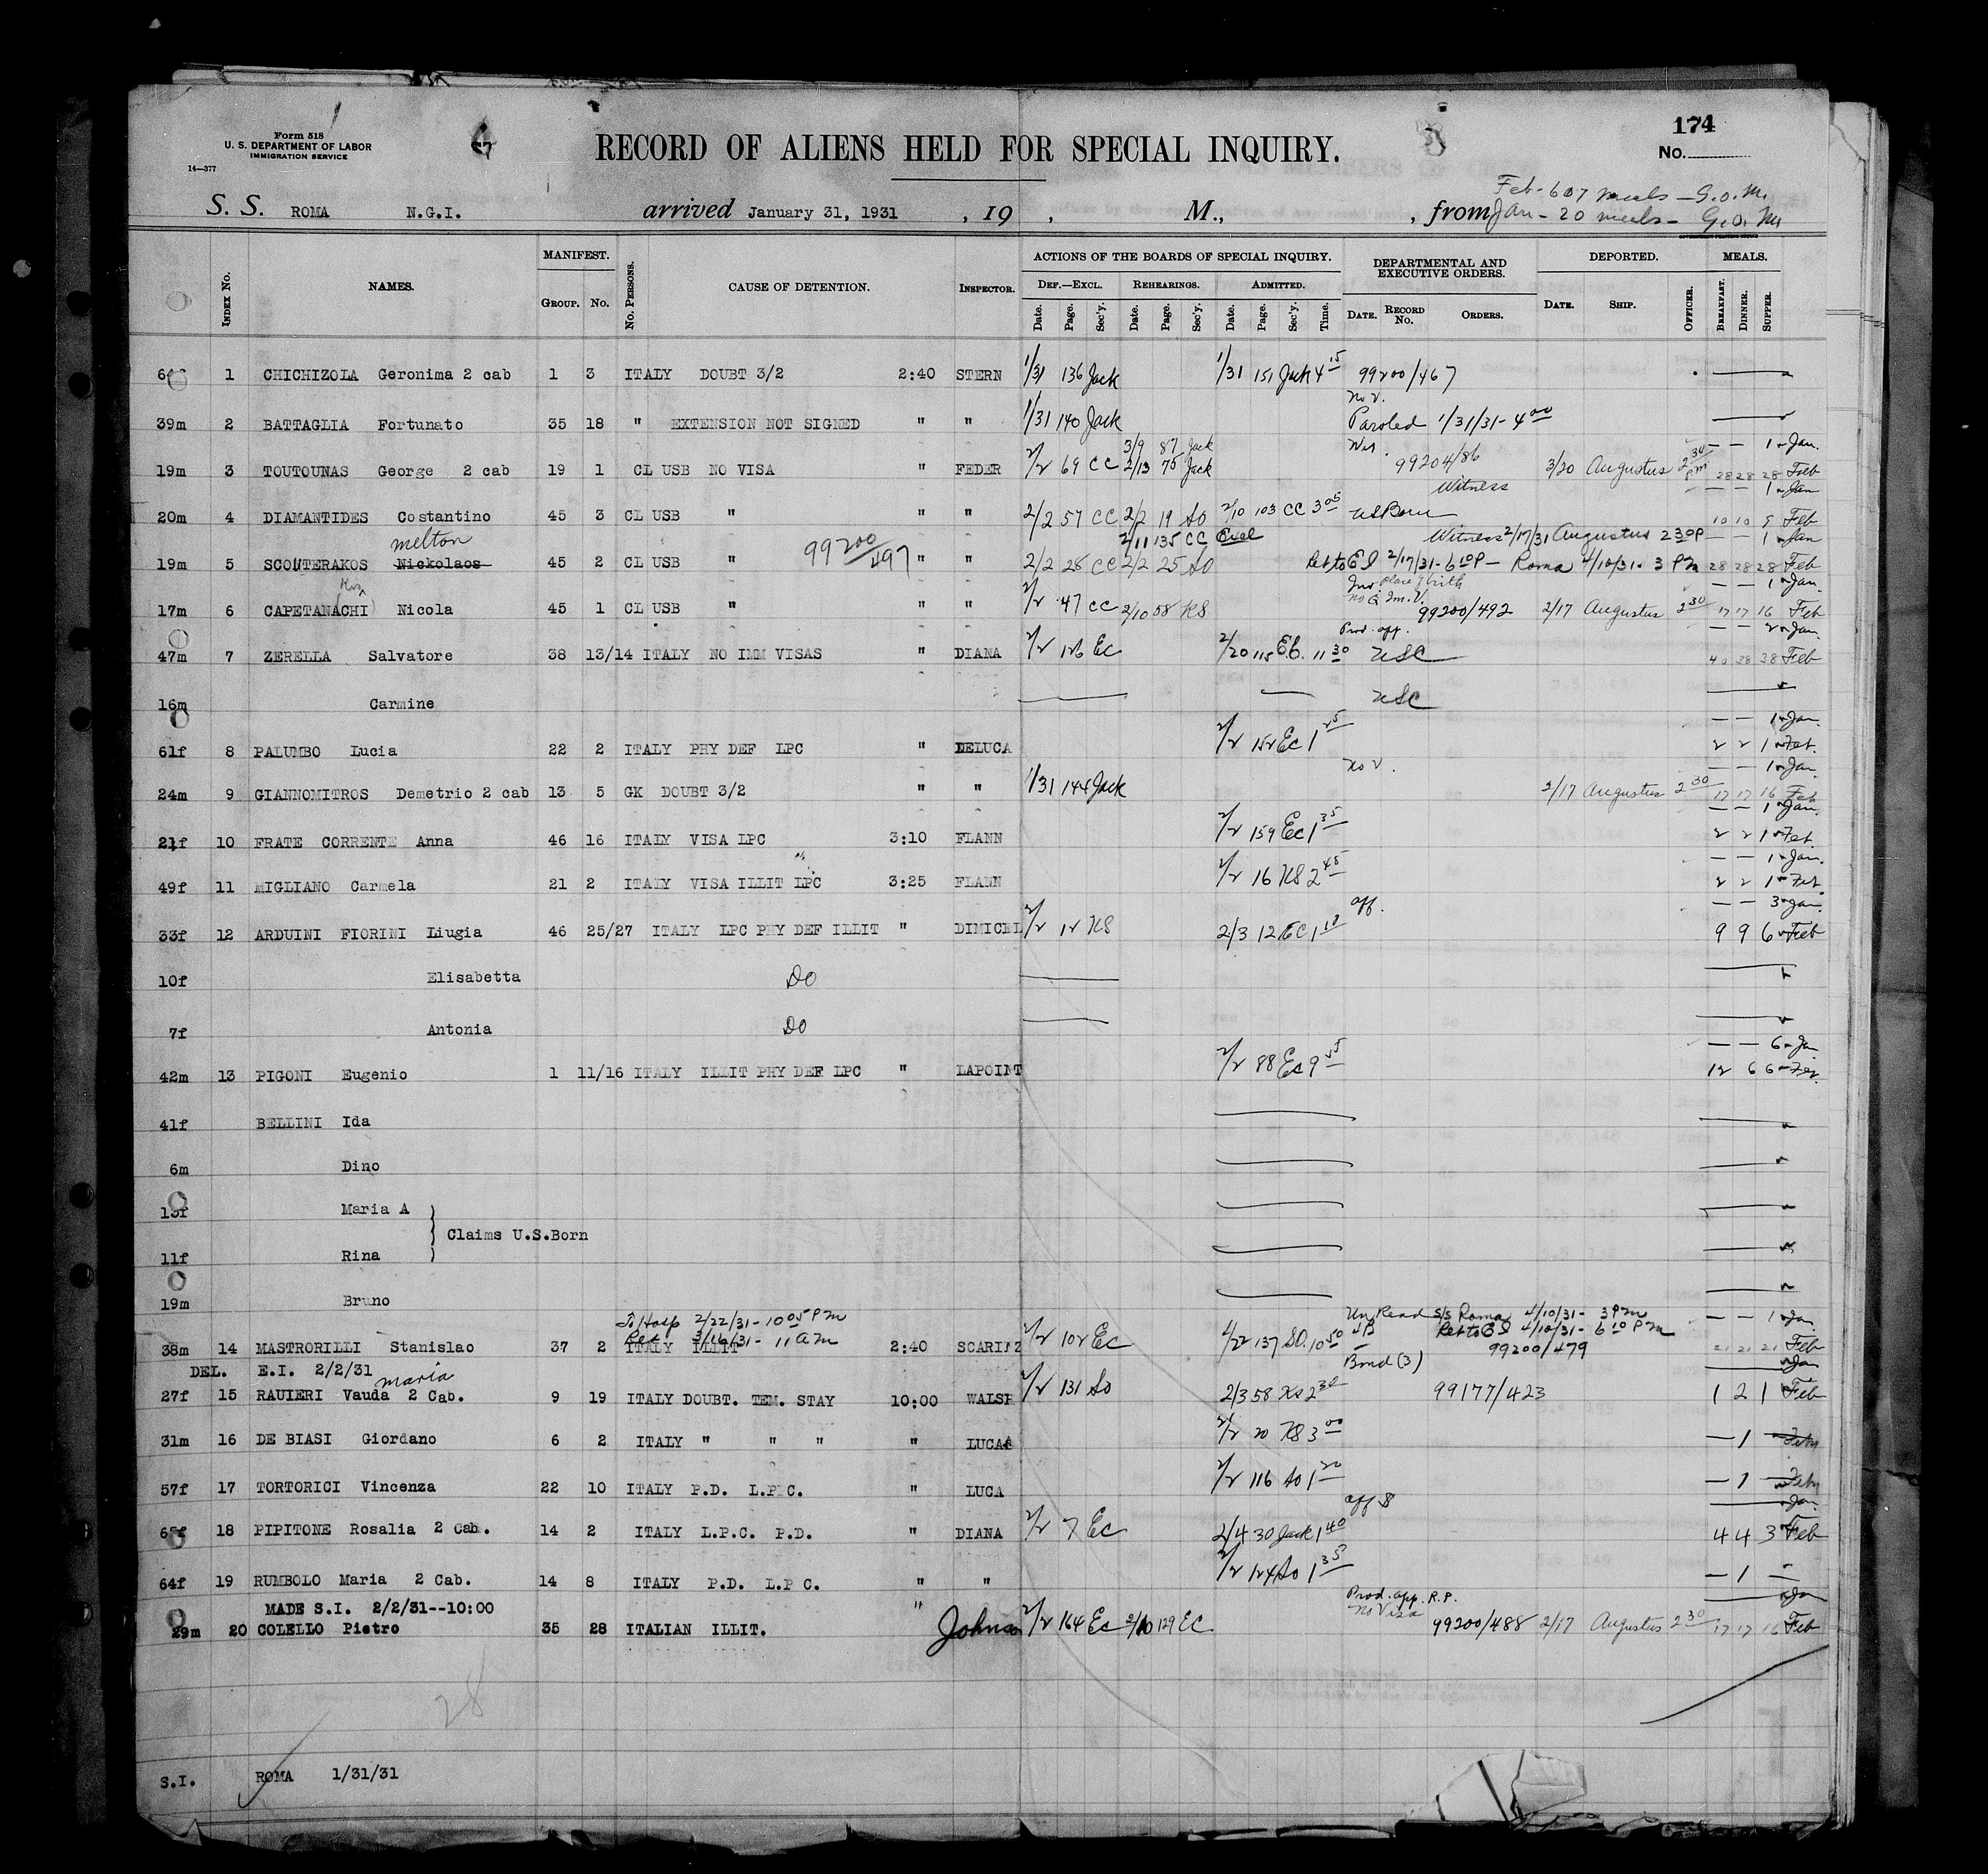 Form 518
U. S. DEPARTMENT OF LABOR
IMMIGRATION SERVICE
14—377
RECORD OF ALIENS HELD FOR SPECIAL INQUIRY.
174
No.
Feb - 607 meals - G.O.M.
S. S. ROMA N.G.I. arrived January 31, 1931 , 19 , M., , from Jan - 20 meals - G.O.M.
INDEX No. NAMES. MANIFEST. GROUP. No. No. PERSONS. CAUSE OF DETENTION. INSPECTOR. ACTIONS OF THE BOARDS OF SPECIAL INQUIRY. DEF.—EXCL. Date. Page. Sec'y. REHEARINGS. Date. Page. Sec'y. ADMITTED. Date. Page. Sec'y. Time. DEPARTMENTAL AND EXECUTIVE ORDERS. DATE. RECORD No. ORDERS. DEPORTED. DATE. SHIP. OFFICER. MEALS. BREAKFAST. DINNER. SUPPER.
1 CHICHIZOLA Geronima 2 cab 1 3 ITALY DOUBT 3/2 2:40 STERN 1/31 136 Jack 1/31 151 Jack 4 15 99200/467
no v.
39m 2 BATTAGLIA Fortunato 35 18 " EXTENSION NOT SIGNED " " 1/31 140 Jack Paroled 1/31/31 - 4 00
3/9 87 Jack — — 1 Jan.
19m 3 TOUTOUNAS George 2 cab 19 1 CL USB NO VISA " FEDER 2/2 69 CC 2/13 75 Jack 99204/86 3/20 Augustus 2 30 PM 28 28 28 Feb
Witness — — 1 Jan
20m 4 DIAMANTIDES Costantino 45 3 CL USB " " " 2/2 57 CC 2/2 19 SO 2/10 103 CC 3 05 US Born 10 10 9 Feb
melton 2/11 135 CC Excl Witness 2/17/31 Augustus 2 30 P — — 1 Jan
19m 5 SCOUTERAKOS Nickolaos 45 2 CL USB " 99200/497 " " 2/2 28 CC 2/2 25 SO Ret to EI 2/17/31 - 6 10 P — Roma 4/10/31 - 3 PM 28 28 28 Feb
place of birth — — 1 Jan.
17m 6 CAPETANACHI Nicola 45 1 CL USB " " " 2/2 47 CC 2/10 58 KS no Q Im. V. 99200/492 2/17 Augustus 2 30 17 17 16 Feb
Prod. app. — — 2 Jan
47m 7 ZERELLA Salvatore 38 13/14 ITALY NO IMM VISAS " DIANA 2/2 126 EC 2/20 115 EC. 11 30 USC 40 38 38 Feb
16m Carmine USC
— — 1 Jan.
61f 8 PALUMBO Lucia 22 2 ITALY PHY DEF LPC " DELUCA 2/2 152 EC 1 25 2 2 1 Feb.
no v. — — 1 Jan.
24m 9 GIANNOMITROS Demetrio 2 cab 13 5 GK DOUBT 3/2 " " 1/31 144 Jack 2/17 Augustus 2 30 17 17 16 Feb
— — 1 Jan.
21f 10 FRATE CORRENTE Anna 46 16 ITALY VISA LPC 3:10 FLANN 2/2 159 EC 1 35 2 2 1 Feb.
— — 1 Jan.
49f 11 MIGLIANO Carmela 21 2 ITALY VISA ILLIT LPC 3:25 FLANN 2/2 16 KS 2 45 2 2 1 Feb.
aff. — — 3 Jan.
33f 12 ARDUINI FIORINI Liugia 46 25/27 ITALY LPC PHY DEF ILLIT " DIMICEL 2/2 12 KS 2/3 12 EC 1 18 9 9 6 Feb
10f Elisabetta DO
7f Antonia DO
— — 6 Jan
42m 13 PIGONI Eugenio 1 11/16 ITALY ILLIT PHY DEF LPC " LAPOINT 2/2 88 EC 9 55 12 6 6 Feb.
41f BELLINI Ida
6m Dino
13f Maria A
Claims U.S.Born
11f Rina
19m Bruno
To Hosp 2/22/31 - 10 05 PM Un Read S/S Roma 4/10/31 - 3 PM — — 1 Jan
Rec 3/16/31 - 11 AM Ret to EI 4/10/31 - 6 10 PM
38m 14 MASTRORILLI Stanislao 37 2 ITALY ILLIT 2:40 SCARINZ 2/2 102 EC 4/22 137 SO. 10 50 99200/479 21 21 21 Feb
DEL. E.I. 2/2/31 Bond (3) Jan
maria
27f 15 RAUIERI Vauda 2 Cab. 9 19 ITALY DOUBT. TEM. STAY 10:00 WALSH 2/2 131 SO 2/3 58 KS 2 30 99177/423 1 2 1 Feb
31m 16 DE BIASI Giordano 6 2 ITALY " " " " LUCAS 2/2 20 KS 3 00 — 1 — Feb
57f 17 TORTORICI Vincenza 22 10 ITALY P.D. L.P.C. " LUCA 2/2 116 SO 1 20 — 1 — Feb
aff $ Jan.
65f 18 PIPITONE Rosalia 2 Cab. 14 2 ITALY L.P.C. P.D. " DIANA 2/2 7 EC 2/4 30 Jack 1 40 4 4 3 Feb
64f 19 RUMBOLO Maria 2 Cab. 14 8 ITALY P.D. L.P C. " " 2/2 124 SO 1 35 — 1 —
MADE S.I. 2/2/31--10:00 " Prod. app. R.P. Jan
no Visa
29m 20 COLELLO Pietro 35 28 ITALIAN ILLIT. Johnson 2/2 164 EC 2/10 129 EC 99200/488 2/17 Augustus 2 30 17 17 16 Feb
28
S.I. ROMA 1/31/31